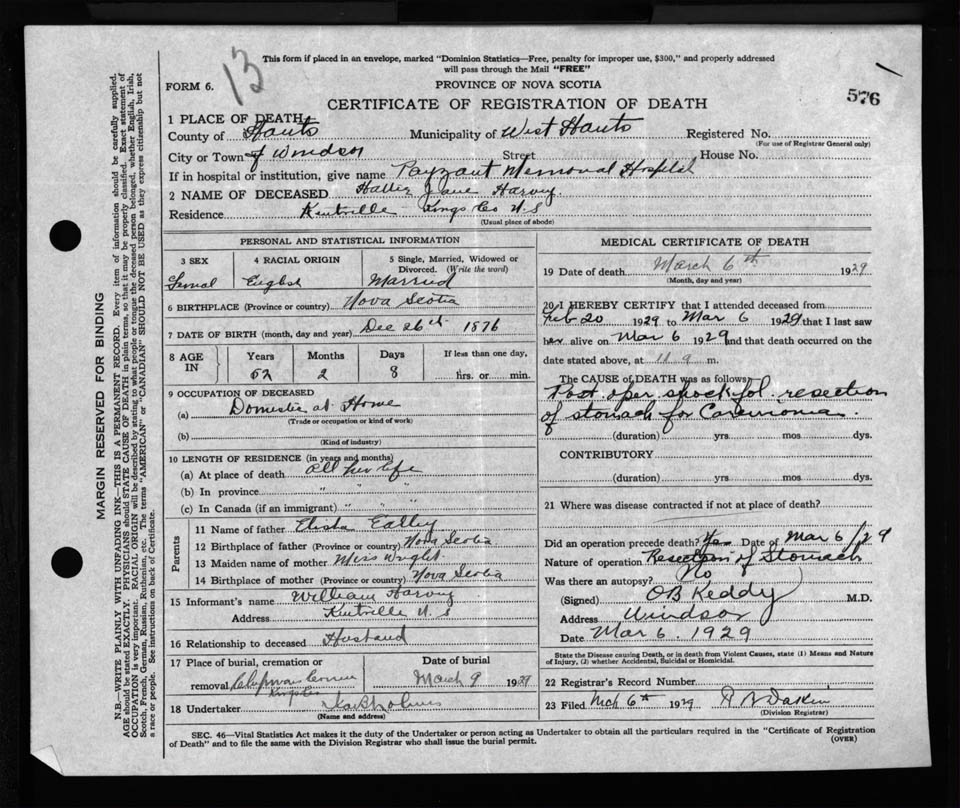 13
This form if placed in an envelope, marked "Dominion Statistics—Free, penalty for improper use, $300," and properly addressed
will pass through the Mail "FREE"
FORM 6.
PROVINCE OF NOVA SCOTIA
576
CERTIFICATE OF REGISTRATION OF DEATH
1 PLACE OF DEATH
County of Hants Municipality of West Hants Registered No.
(For use of Registrar General only)
City or Town of Windsor Street House No.
If in hospital or institution, give name Payzant Memorial Hospital
2 NAME OF DECEASED Jane Harvey
Residence Kentville Kings Co N.S
(Usual place of abode)
PERSONAL AND STATISTICAL INFORMATION
3 SEX 4 RACIAL ORIGIN 5 Single, Married, Widowed or
Divorced. (Write the word)
Femal English Married
6 BIRTHPLACE (Province or country) Nova Scotia
7 DATE OF BIRTH (month, day and year) Dec 26th 1876
8 AGE IN Years Months Days If less than one day,
52 2 8 hrs. or min.
9 OCCUPATION OF DECEASED
(a) Domestic at Home
(Trade or occupation or kind of work)
(b)
(Kind of industry)
10 LENGTH OF RESIDENCE (in years and months)
(a) At place of death All her life
(b) In province " " "
(c) In Canada (if an immigrant) " " "
Parents
11 Name of father Elisha
12 Birthplace of father (Province or country) Nova Scotia
13 Maiden name of mother Miss Wright
14 Birthplace of mother (Province or country) Nova Scotia
15 Informant's name William Harvey
Address Kentville N. S
16 Relationship to deceased Husband
17 Place of burial, cremation or Date of burial
removal Chipman Corner March 9 1929
Kings Co
18 Undertaker
(Name and address)
MEDICAL CERTIFICATE OF DEATH
19 Date of death March 6th 1929
(Month, day and year)
20 I HEREBY CERTIFY that I attended deceased from
Feb 20 1929 to Mar 6 1929 that I last saw
her alive on Mar 6 1929 and that death occurred on the
date stated above, at 11.9 m.
The CAUSE of DEATH was as follows:
Post oper shock fol. resection
of stomach for Carcinoma.
(duration) yrs. mos. dys.
CONTRIBUTORY
(duration) yrs. mos. dys.
21 Where was disease contracted if not at place of death?
Did an operation precede death? Yes Date of Mar 6/29
Nature of operation Resection of Stomach
Was there an autopsy? No
(Signed) OB Keddy M.D.
Address Windsor
Date Mar 6. 1929
State the Disease causing Death, or in death from Violent Causes, state (1) Means and Nature
of Injury, (2) whether Accidental, Suicidal or Homicidal.
22 Registrar's Record Number
23 Filed Mch 6th 1929
(Division Registrar)
SEC. 46—Vital Statistics Act makes it the duty of the Undertaker or person acting as Undertaker to obtain all the particulars required in the "Certificate of Registration
of Death" and to file the same with the Division Registrar who shall issue the burial permit.
(OVER)
MARGIN RESERVED FOR BINDING
N.B.—WRITE PLAINLY WITH UNFADING INK—THIS IS A PERMANENT RECORD. Every item of information should be carefully supplied.
AGE should be stated EXACTLY. PHYSICIANS should STATE CAUSE OF DEATH in plain terms, so that it may be properly classified. Exact statement of
OCCUPATION is very important. RACIAL ORIGIN will be described by stating to what people or tongue the deceased person belonged, whether English, Irish,
Scotch, French, German, Russian, Ruthenian, etc. The terms "AMERICAN" or "CANADIAN" SHOULD NOT BE USED as they express citizenship but not
a race or people. See instructions on back of Certificate.